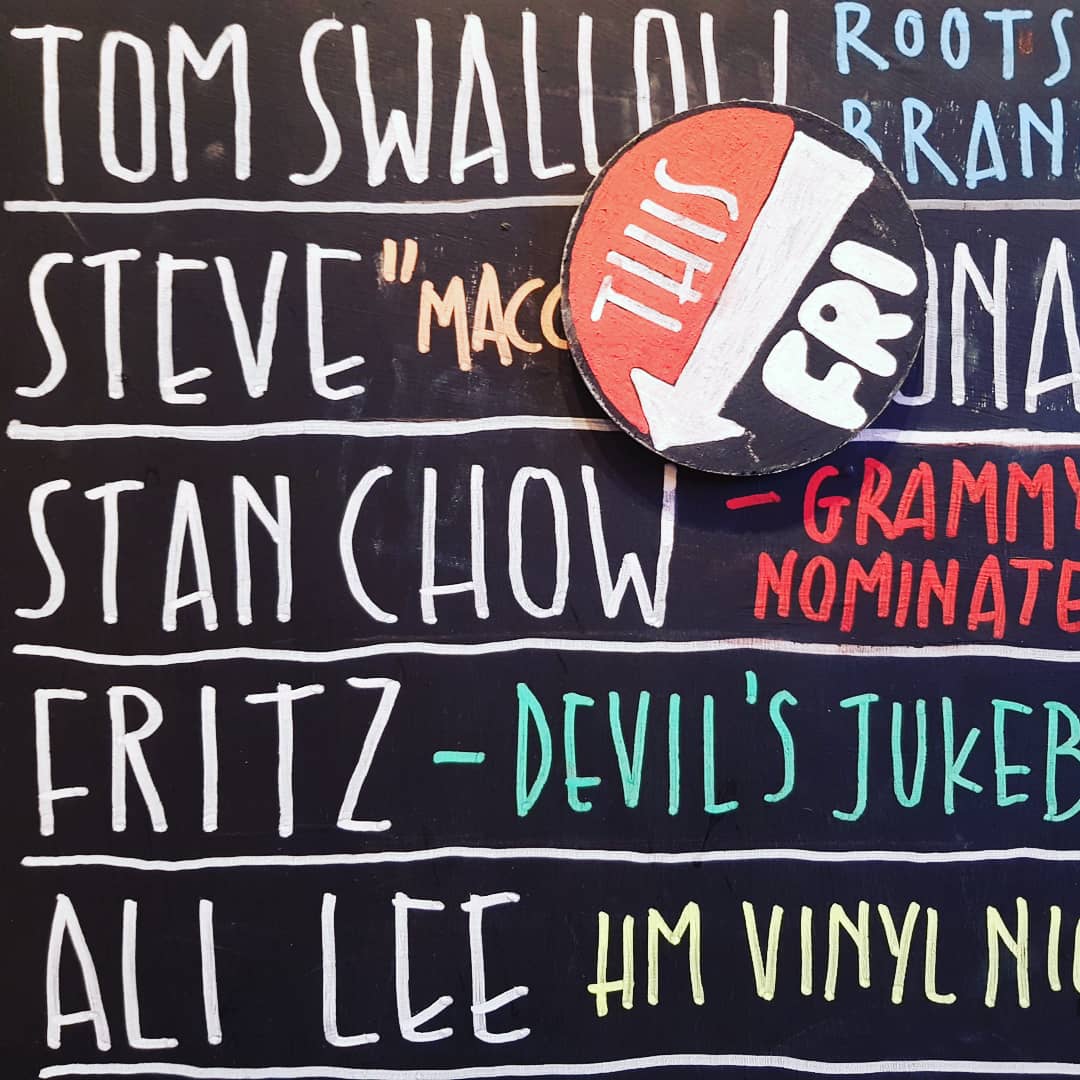 TOM SWALLOW ROOTS
BRAN
STEVE "MACC ONA
THIS
FRI
STAN CHOW - GRAMMY
NOMINATE
FRITZ - DEVIL'S JUKEB
ALI LEE HM VINYL NI